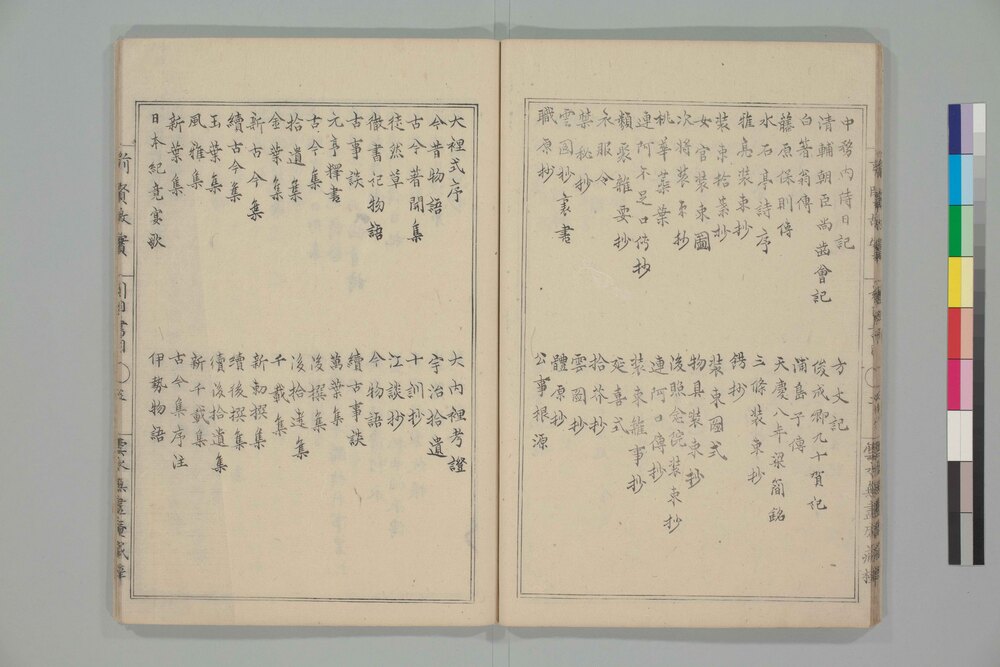 中務内侍日記
方丈記
清輔朝臣尚歯會記
俊成卿九十賀記
白箸翁傳
浦島子傳
藤原保則傳
天慶八年梁簡銘
水石亭詩序
三條装束抄
雅亮装束抄
錺抄
装束拾葉抄
装束圖式
女官装束圖
物具装束抄
次将装束抄
後照念院装束抄
桃華蘂葉
連阿口傳抄
連阿不足口傳抄
装束雑事抄
類聚雑要抄
延喜式
衣服令
拾芥抄
禁秘抄
雲圖抄
雲圖抄裏書
體原抄
職原抄
公事根源
大裡式序
大内裡考證
今昔物語
宇治拾遺
古今著聞集
十訓抄
徒然草
江談抄
徹書記物語
今物語
古事談
續古事談
元亨釋書
萬葉集
古今集
後撰集
拾遺集
後拾遺集
金葉集
千載集
新古今集
新勅撰集
續古今集
續後撰集
玉葉集
續後拾遺集
風雅集
新千載集
新葉集
古今集序注
日本紀竟宴歌
伊勢物語
前賢故實
引用書目